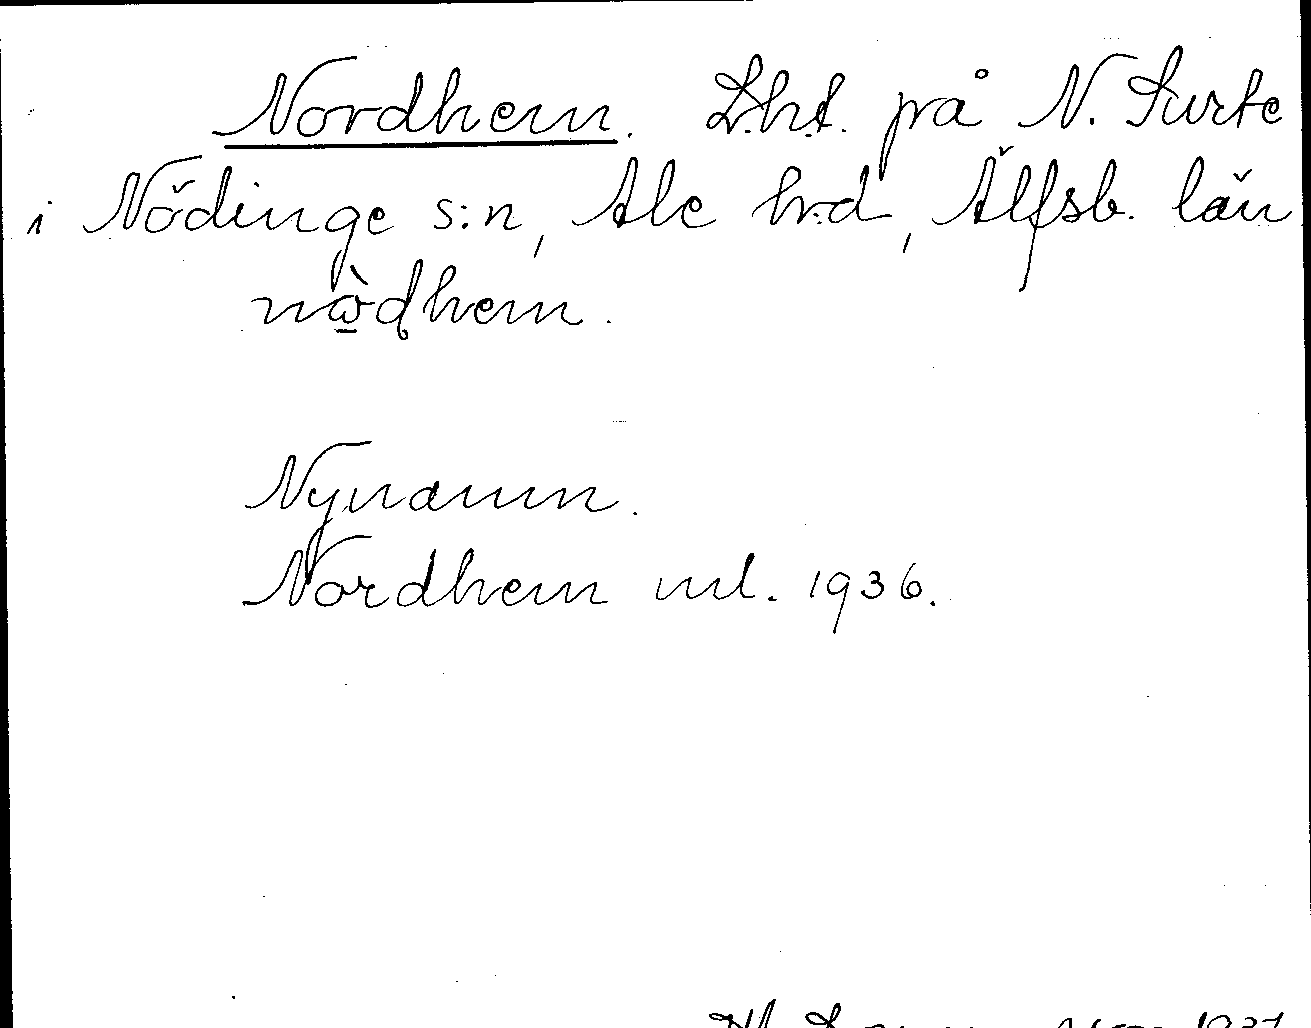 Nordhem. Lht. på N. Surte
i Nödinge s:n, Ale h:d, Älfsb. län
nὼdhem.
Nynamn.
Nordhem ml. 1936.
1937